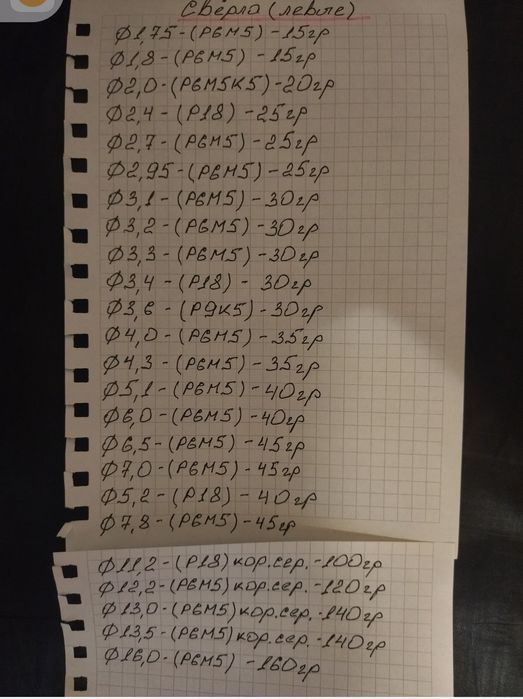 Свёрла (левые)
Ф1,75-(Р6М5)-15гр
Ф1,8-(Р6М5)-15гр
Ф2,0-(Р6М5К5)-20гр
Ф2,4-(Р18)-25гр
Ф2,7-(Р6М5)-25гр
Ф2,95-(Р6М5)-25гр
Ф3,1-(Р6М5)-30гр
Ф3,2-(Р6М5)-30гр
Ф3,3-(Р6М5)-30гр
Ф3,4-(Р18)-30гр
Ф3,6-(Р9К5)-30гр
Ф4,0-(Р6М5)-35гр
Ф4,3-(Р6М5)-35гр
Ф5,1-(Р6М5)-40гр
Ф6,0-(Р6М5)-40гр
Ф6,5-(Р6М5)-45гр
Ф7,0-(Р6М5)-45гр
Ф5,2-(Р18)-40гр
Ф7,8-(Р6М5)-45гр
Ф11,2-(Р18)кор.сер.-100гр
Ф12,2-(Р6М5)кор.сер.-120гр
Ф13,0-(Р6М5)кор.сер.-140гр
Ф13,5-(Р6М5)кор.сер.-140гр
Ф16,0-(Р6М5)-160гр